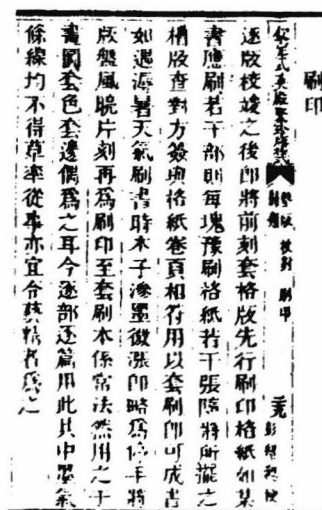 刷印
欽定武英殿聚珍版程式
墊版 校對 刷印
逐版校竣之後即將前刻套格版先行刷印格紙如某
書應刷若干部則每塊豫刷格紙若干張隨將所擺之
槽版查對方簽與格紙卷頁相符用以套刷即可成書
如遇溽暑天氣刷書時木子滲墨微漲即略為停手將
版盤風晾片刻再為刷印至套刷本係常法然用之于
書圖套色套邊偶為之耳今逐部逐篇用此其中墨氣
條線均不得草率從事亦宜令熟精者為之